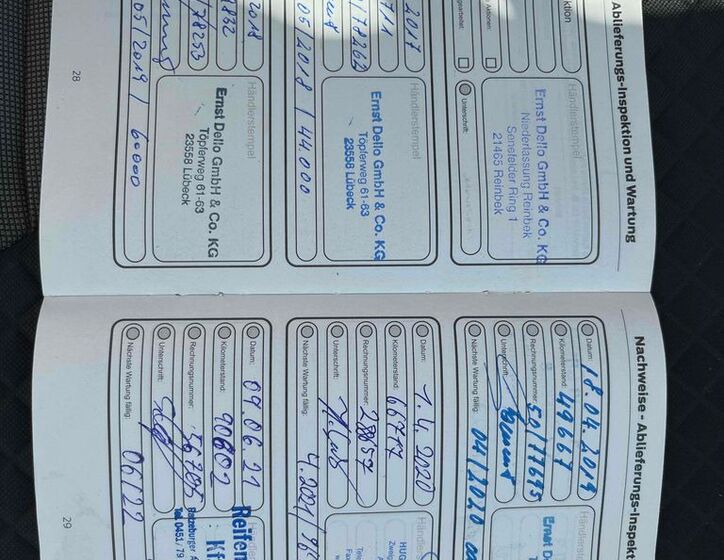 Ablieferungs-Inspektion und Wartung
ktion
Aktionen:
Unterschrift:
Händlerstempel
Ernst Dello GmbH & Co. KG
Niederlassung Reinbek
Senefelder Ring 1
21465 Reinbek
2017
05/2018 / 44000
Händlerstempel
Ernst Dello GmbH & Co. KG
Töpferweg 61-63
23558 Lübeck
2018
78253
05/2019 / 60000
Händlerstempel
Ernst Dello GmbH & Co. KG
Töpferweg 61-63
23558 Lübeck
28
Nachweise - Ablieferungs-Inspekt
Datum: 18.04.2019
Kilometerstand: 49667
Rechnungsnummer: 50/71645
Unterschrift:
Nächste Wartung fällig: 04/2020
Händ
Ernst D
Datum: 1.4.2020
Kilometerstand: 66717
Rechnungsnummer: 28857
Unterschrift:
Nächste Wartung fällig: 4.2021/
Händlers
HUG
Zweig
Tele
Fax
Datum: 09.06.21
Kilometerstand: 90602
Rechnungsnummer: 56785
Unterschrift:
Nächste Wartung fällig: 06/22
Händl
Reifen
Kf
Ratzeburger A
Tel. 0451 / 79
29